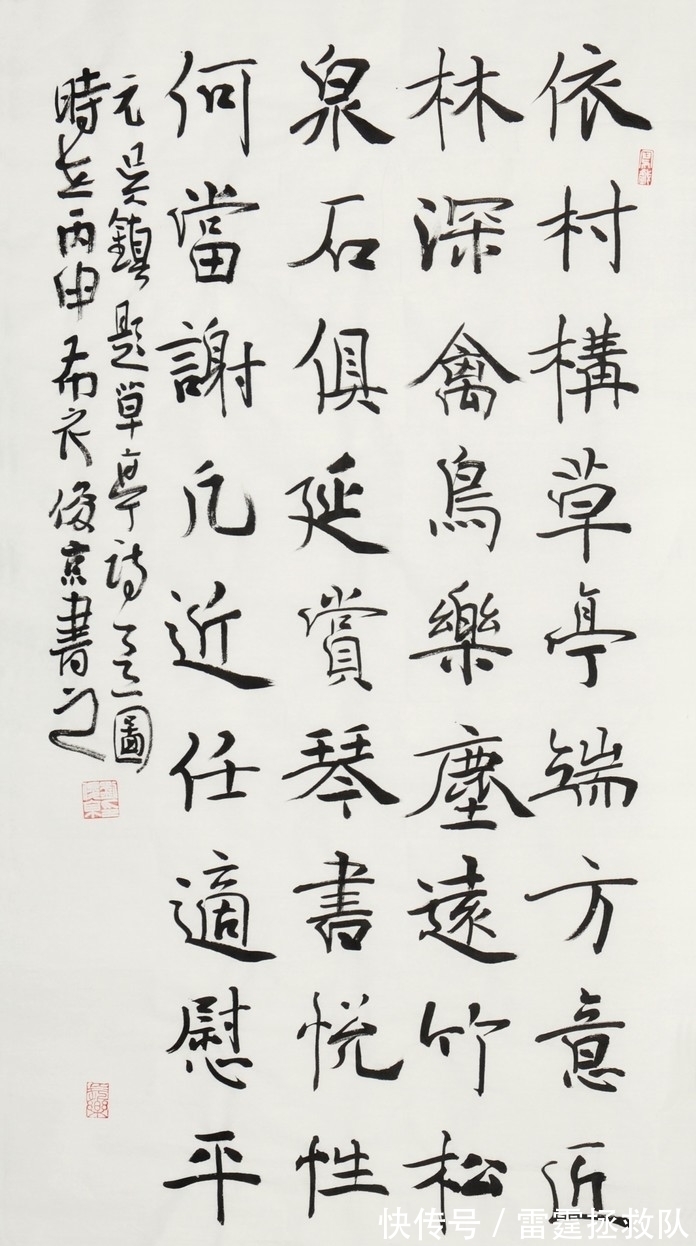 依村構草亭端方意匠
林深禽鳥樂塵遠竹松
泉石俱延賞琴書悦性
何當謝凡近任適慰平
元吳鎮題草亭詩意圖
時在丙申布衣俊京書之
快传号 / 雷霆拯救队